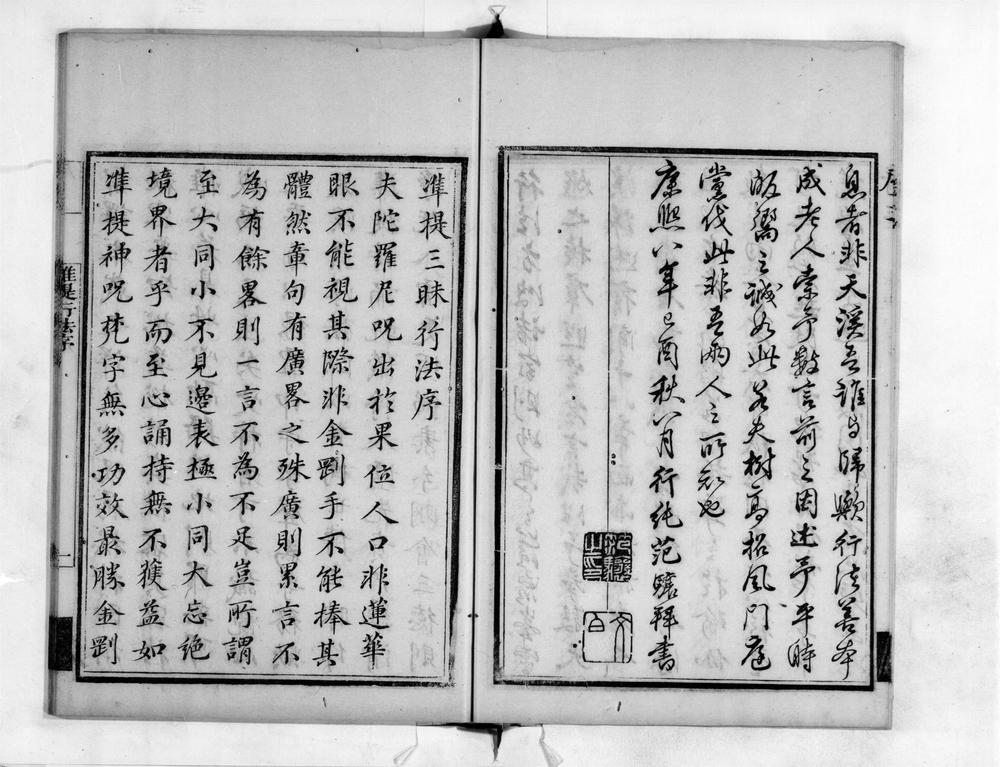 息者非天溪吾誰与歸歟行法善本
成老人索予數言前之因述予平時
皈嚮之誠如此若夫樹高招風門庭
黨伐此非吾兩人之所知也
康熈八年己酉秋八月行純范驤拜書
范驤之印
文白
準提三昧行法序
夫陀羅尼呪出於果位人口非蓮華
眼不能視其際非金剛手不能捧其
體然章句有廣畧之殊廣則累言不
為有餘畧則一言不為不足豈所謂
至大同小不見邊表極小同大忘絶
境界者乎而至心誦持無不獲益如
準提神呪梵字無多功效最勝金剛
準提行法序
一